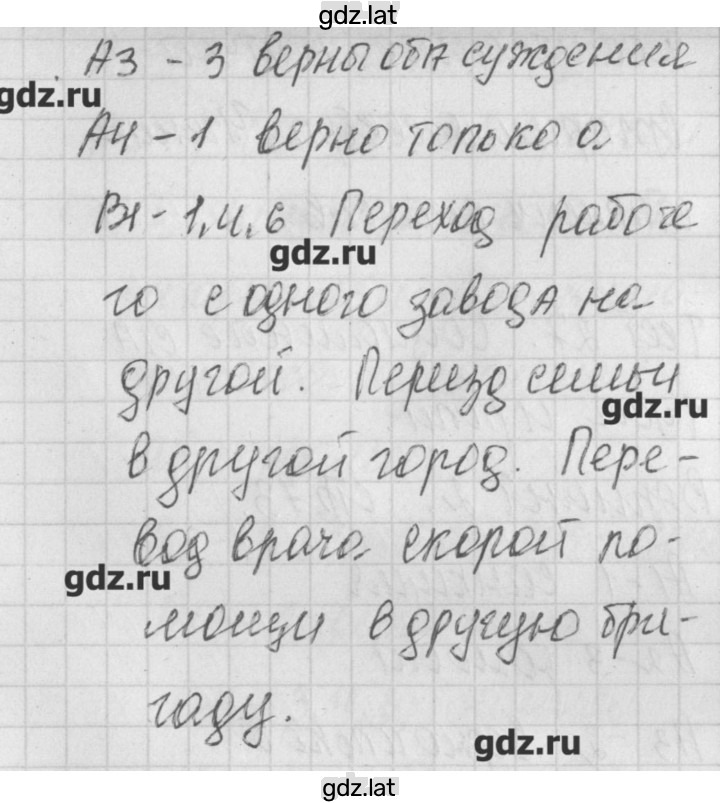 gdz.lat
А3 - 3 верны оба суждения
gdz.ru
А4 - 1 верно только а
В1 - 1,4,6 Переход рабоче
gdz.ru
го с одного завода на
другой. Переезд семьи
gdz.ru
в другой город. Пере-
вод врача скорой по-
gdz.ru
мощи в другую бри-
гаду.
gdz.ru
gdz.lat